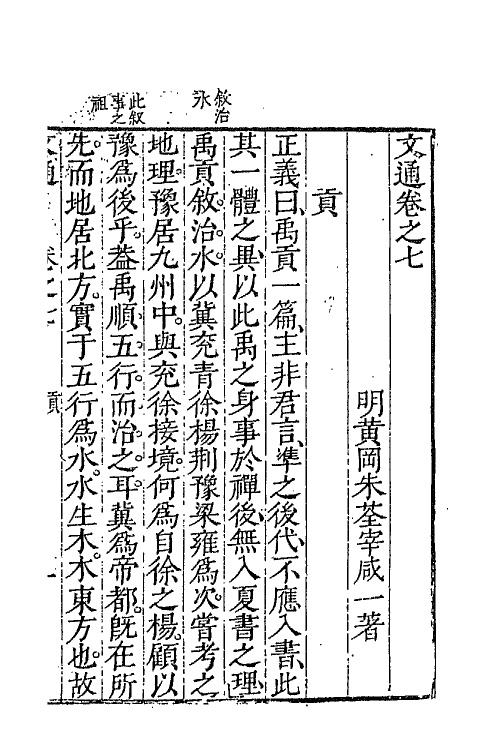 文通卷之七
明黃岡朱荃宰咸一著
貢
正義曰禹貢一篇主非君言準之後代不應入書此
其一體之異以此禹之身事於禪後無入夏書之理
禹貢敘治水以冀兗青徐楊荆豫梁雍爲次嘗考之
地理豫居九州中與兗徐接境何爲自徐之楊顧以
豫爲後乎葢禹順五行而治之耳冀爲帝都旣在所
先而地居北方實于五行爲水水生木木東方也故
敘治
水
此叙
事之
祖
文通
卷之七
貢
一